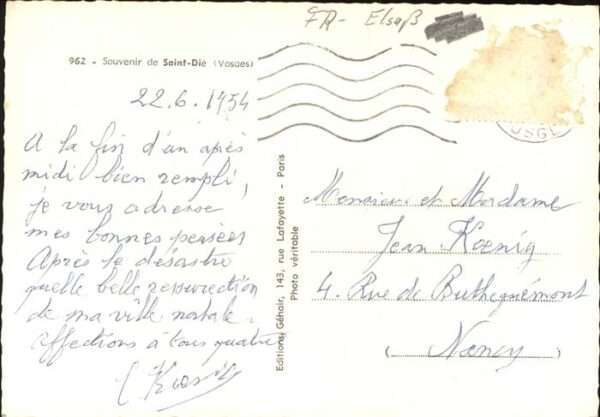 FR- Elsaß
962 - Souvenir de Saint-Dié (Vosges)
22.6.1954
A la fin d'un après
midi bien rempli,
je vous adresse
mes bonnes pensées
Après le désastre
quelle belle résurrection
de ma ville natale.
Affections à tous quatre
Editions Géhoir, 143, rue Lafayette - Paris
Photo véritable
Monsieur et Madame
Jean Kœnig
4. Rue de Buthegnémont
(Nancy)